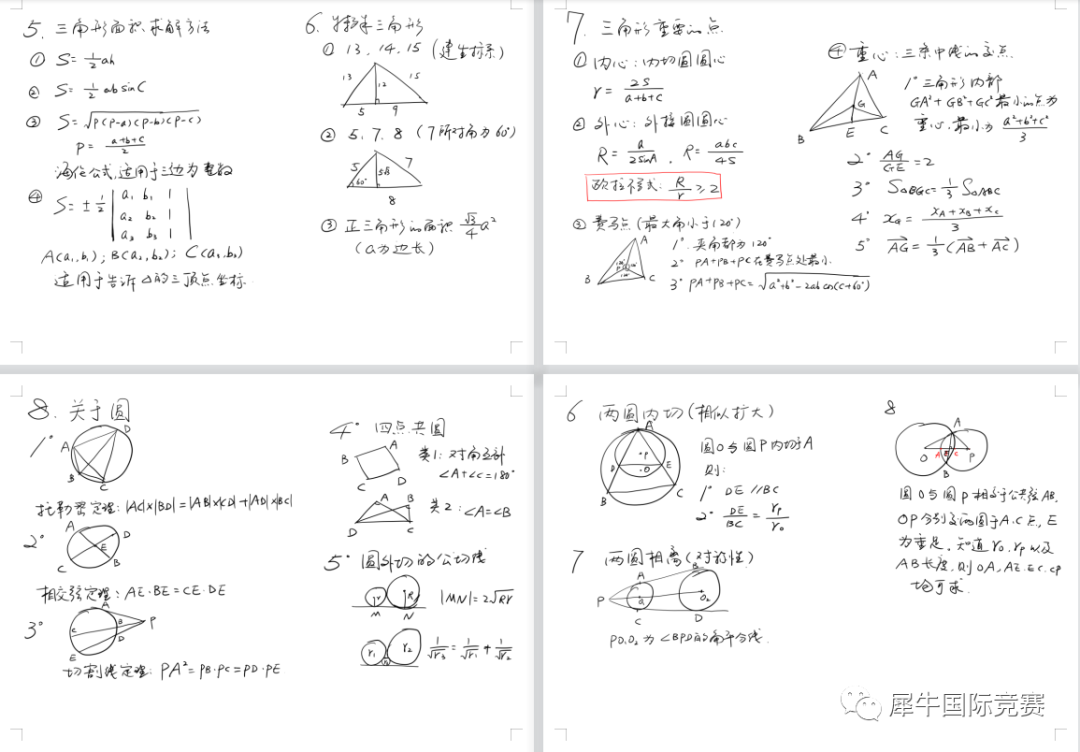 5. 三角形面积求解方法
① S=½ah
② S=½absinC
③ S=√p(p-a)(p-b)(p-c)
P=(a+b+c)/2
海伦公式,适用于三边为整数
④ S=±½ |a₁ b₁ 1|
|a₂ b₂ 1|
|a₃ b₃ 1|
A(a₁,b₁); B(a₂,b₂); C(a₃,b₃)
适用于告诉△的三顶点坐标.
6. 特殊三角形
① 13. 14. 15 (建坐标系)
13 12 15
5 9
② 5. 7. 8 (7所对角为60°)
5 7
60°
8
③ 正三角形的面积 √3/4 a²
(a为边长)
7. 三角形重要的点
① 内心:内切圆圆心
r=2S/(a+b+c)
② 外心:外接圆圆心
R=a/2sinA , R=abc/4S
欧拉不等式: R/r ≥2
③ 费马点(最大角小于120°)
A B C
1° 夹角都为120°
2° PA+PB+PC在费马点处最小.
3° PA+PB+PC=√a²+b²-2abcos(C+60°)
④ 重心:三条中线的交点
A G B E C
1° 三角形内部
GA²+GB²+GC²最小的点为
重心,最小为 (a²+b²+c²)/3
2° AG/GE=2
3° S△BGC=⅓S△ABC
4° xG=(xA+xB+xC)/3
5° AG=⅓(AB+AC)
8. 关于圆
1° A D B C
托勒密定理: |AC|×|BD|=|AB|×|CD|+|AD|×|BC|
2° A D E C B
相交弦定理: AE·BE=CE·DE
3° A B P C D E
切割线定理: PA²=PB·PC=PD·PE
4° 四点共圆
A B C D
类1: 对角互补
∠A+∠C=180°
A B D C
类2: ∠A=∠B
5° 圆外切的公切线
r R M N
|MN|=2√Rr
r₁ r₂
1/√r₃=1/√r₁+1/√r₂
6 两圆内切(相似扩大)
A P D O E B C
圆O与圆P内切于A
则:
1° DE//BC
2° DE/BC=rP/rO
7 两圆相离(对称性)
A B P O₁ O₂ C D
PO₁O₂为∠BPD的角平分线.
8
A O A E C P B
圆O与圆P相交于公共弦AB,
OP分别交两圆于A.C点,E
为垂足,知道rO,rP以及
AB长度,则OA,AE.EC.CP
均可求.
犀牛国际竞赛